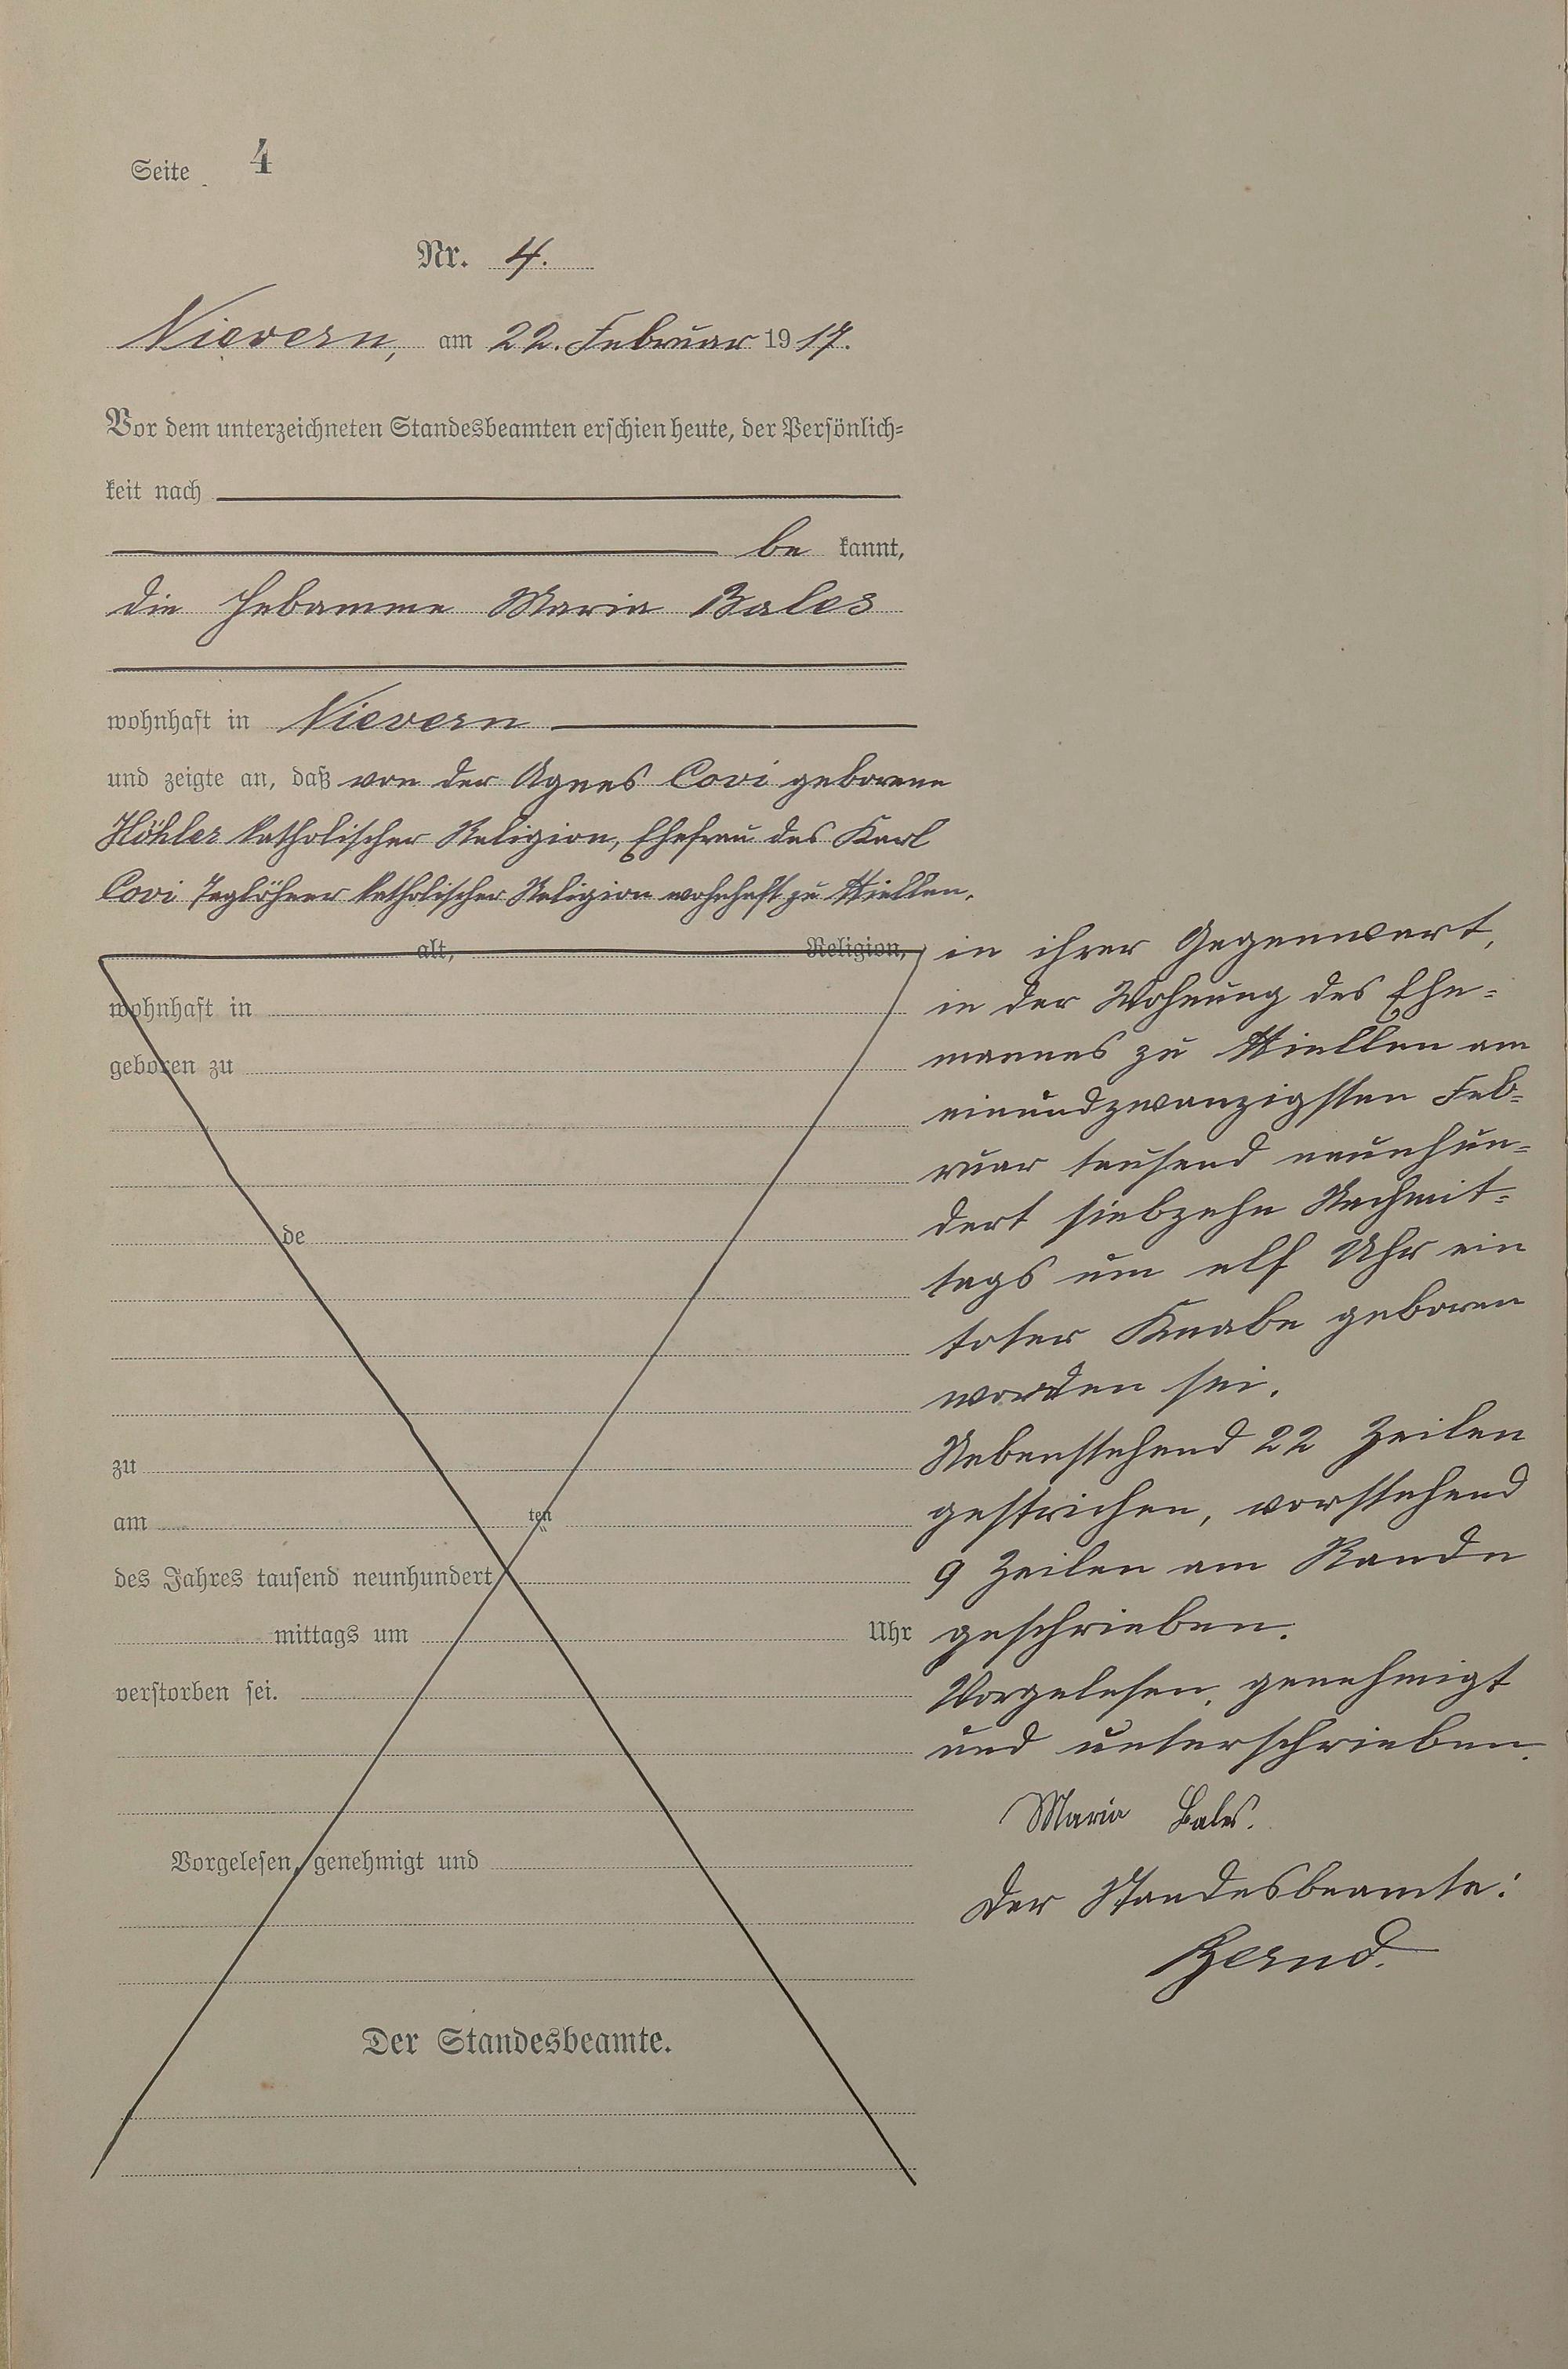 Seite 4
Nr. 4.
Nievern, am 22. Februar 1917.
Vor dem unterzeichneten Standesbeamten erschien heute, der Persönlich=
keit nach
be kannt,
die Hebamme Maria Bales
wohnhaft in Nievern
und zeigte an, daß von der Agnes Covi geborene
Höhler katholischer Religion, Ehefrau des Karl
Covi Taglöhner katholischer Religion wohnhaft zu Miellen,
alt, Religion,
wohnhaft in
geboren zu
de
zu
am ten
des Jahres tausend neunhundert
mittags um Uhr
verstorben sei.
Vorgelesen, genehmigt und
Der Standesbeamte.
in ihrer Gegenwart,
in der Wohnung des Ehe=
mannes zu Miellen am
einundzwanzigsten Feb=
ruar tausend neunhun=
dert siebzehn Nachmit=
tags um elf Uhr ein
toter Knabe geboren
worden sei.
Nebenstehend 22 Zeilen
gestrichen, vorstehend
9 Zeilen am Rande
geschrieben.
Vorgelesen, genehmigt
und unterschrieben.
Maria Bales.
Der Standesbeamte: